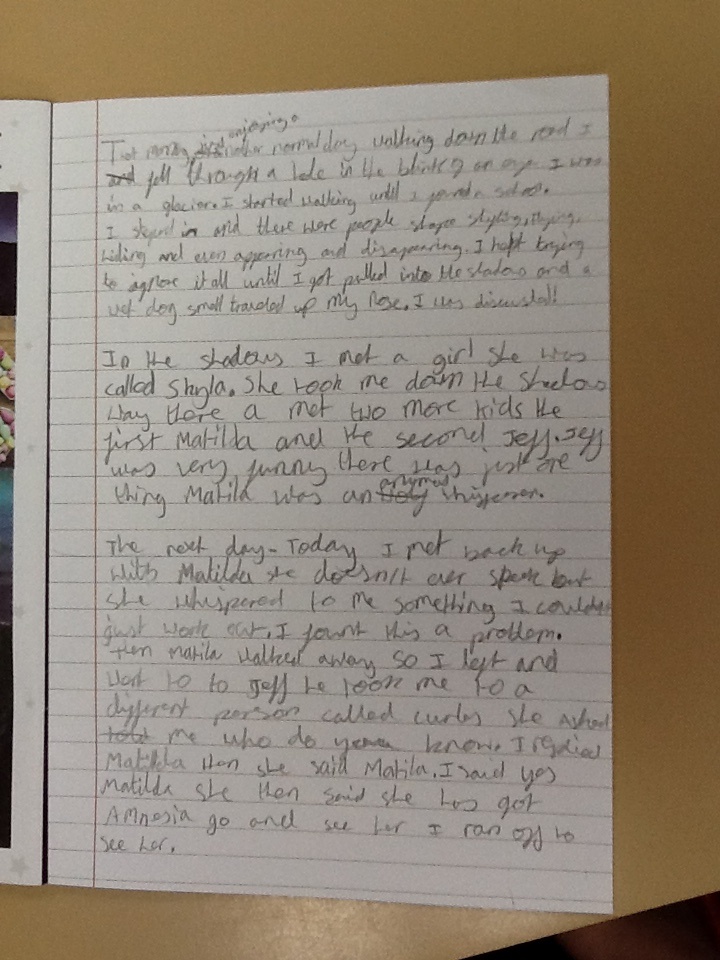 enjoying a
normal day walking down the road I
and fell through a hole in the blink of an eye I was
in a glacier. I started walking until I a school.
I in and there were people shape
hiding and even appearing and disapearing. I kept trying
to it all until I got pulled into the shadows and a
wet dog smell traveled up my nose. I was
In the shadows I met a girl she was
called Shyla. She took me down the shadow
way there a met two more kids the
first Matilda and the second Jeff. Jeff
was very funny there was just one
thing Matila was an whisperer.
The next day - Today I met back up
with Matilda she doesn't ever speak but
she whispered to me something I couldn
just work out. I fount this a problem.
then Matila walked away so I left and
went to to Jeff he took me to a
different person called she asked
told me who do know. I
Matilda then she said Matila. I said yes
Matilda she then said she has got
Amnesia go and see her I ran off to
see her.